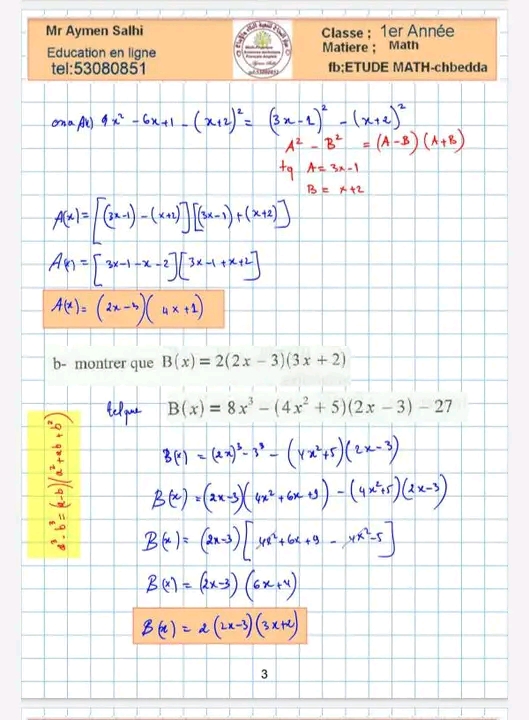 Mr Aymen Salhi
Education en ligne
tel:53080851
Classe ; 1er Année
Matiere ; Math
fb;ETUDE MATH-chbedda
ona A(x) 9x² - 6x+1 - (x+2)² = (3x-1)² - (x+2)²
A² - B² = (A-B)(A+B)
tq A = 3x-1
B = x+2
A(x) = [(3x-1) - (x+2)][(3x-1) + (x+2)]
A(x) = [3x-1-x-2][3x-1+x+2]
A(x) = (2x-3)(4x+1)
b- montrer que B(x) = 2(2x - 3)(3x + 2)
telque B(x) = 8x³ - (4x² + 5)(2x - 3) - 27
a³-b³=(a-b)(a²+ab+b²)
B(x) = (2x)³-3³ - (4x²+5)(2x-3)
B(x) = (2x-3)(4x²+6x+9) - (4x²+5)(2x-3)
B(x) = (2x-3)[4x²+6x+9 - 4x²-5]
B(x) = (2x-3)(6x+4)
B(x) = 2(2x-3)(3x+2)
3